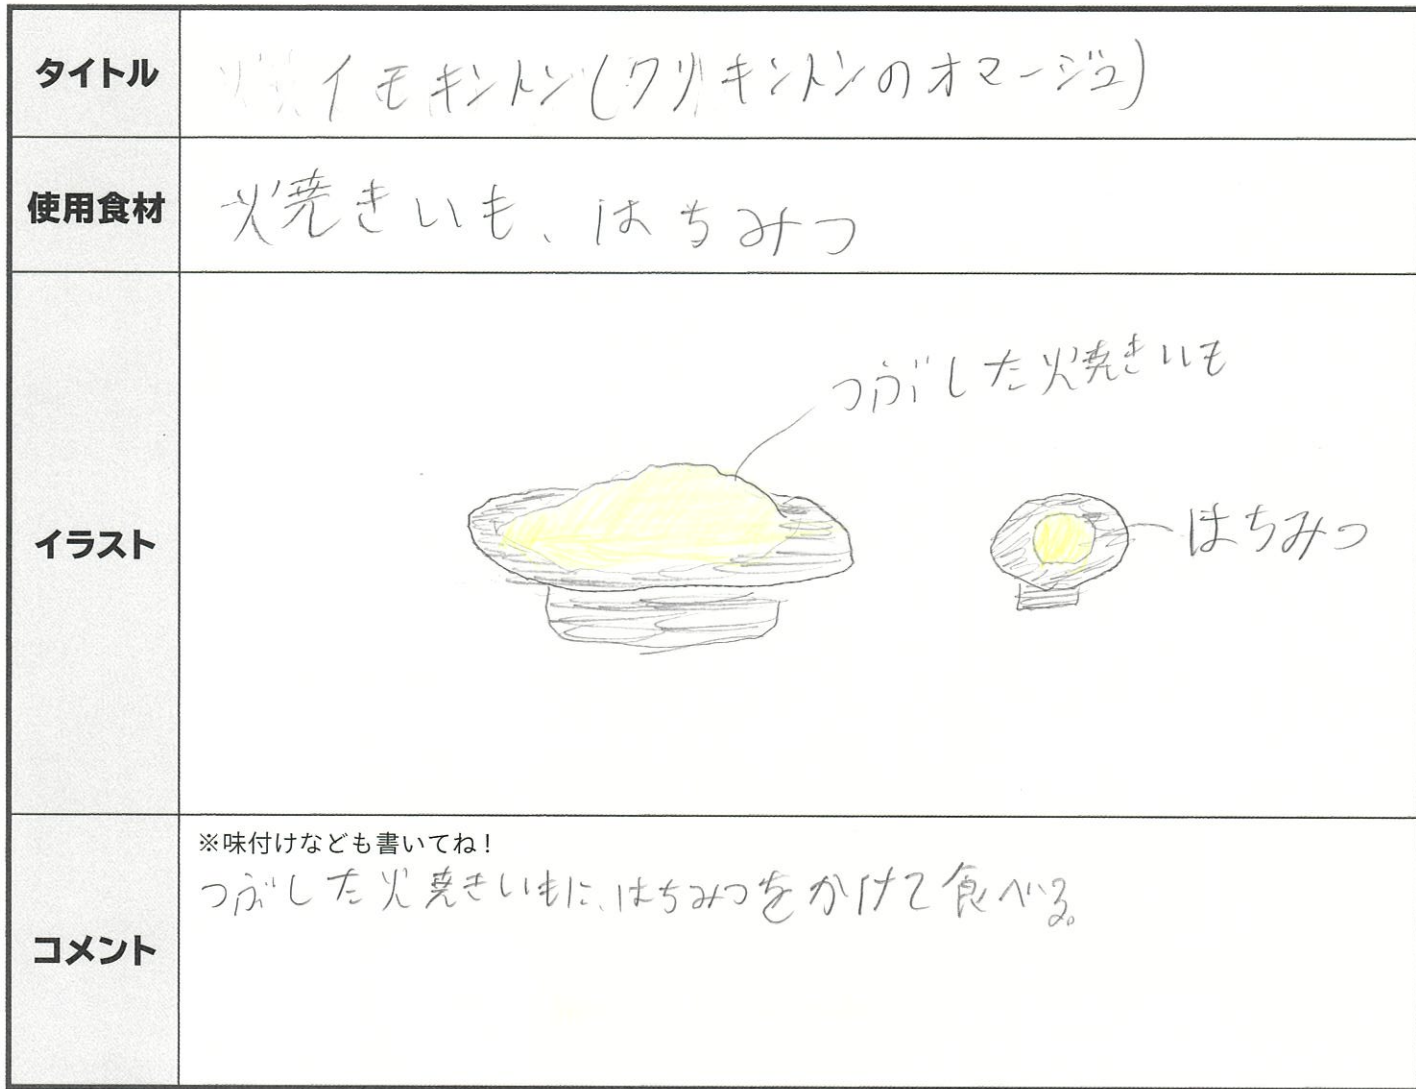 タイトル
イモキントン(クリキントンのオマージュ)
使用食材
焼きいも、はちみつ
イラスト
つぶした焼きいも
はちみつ
コメント
※味付けなども書いてね!
つぶした焼きいもに、はちみつをかけて食べる。